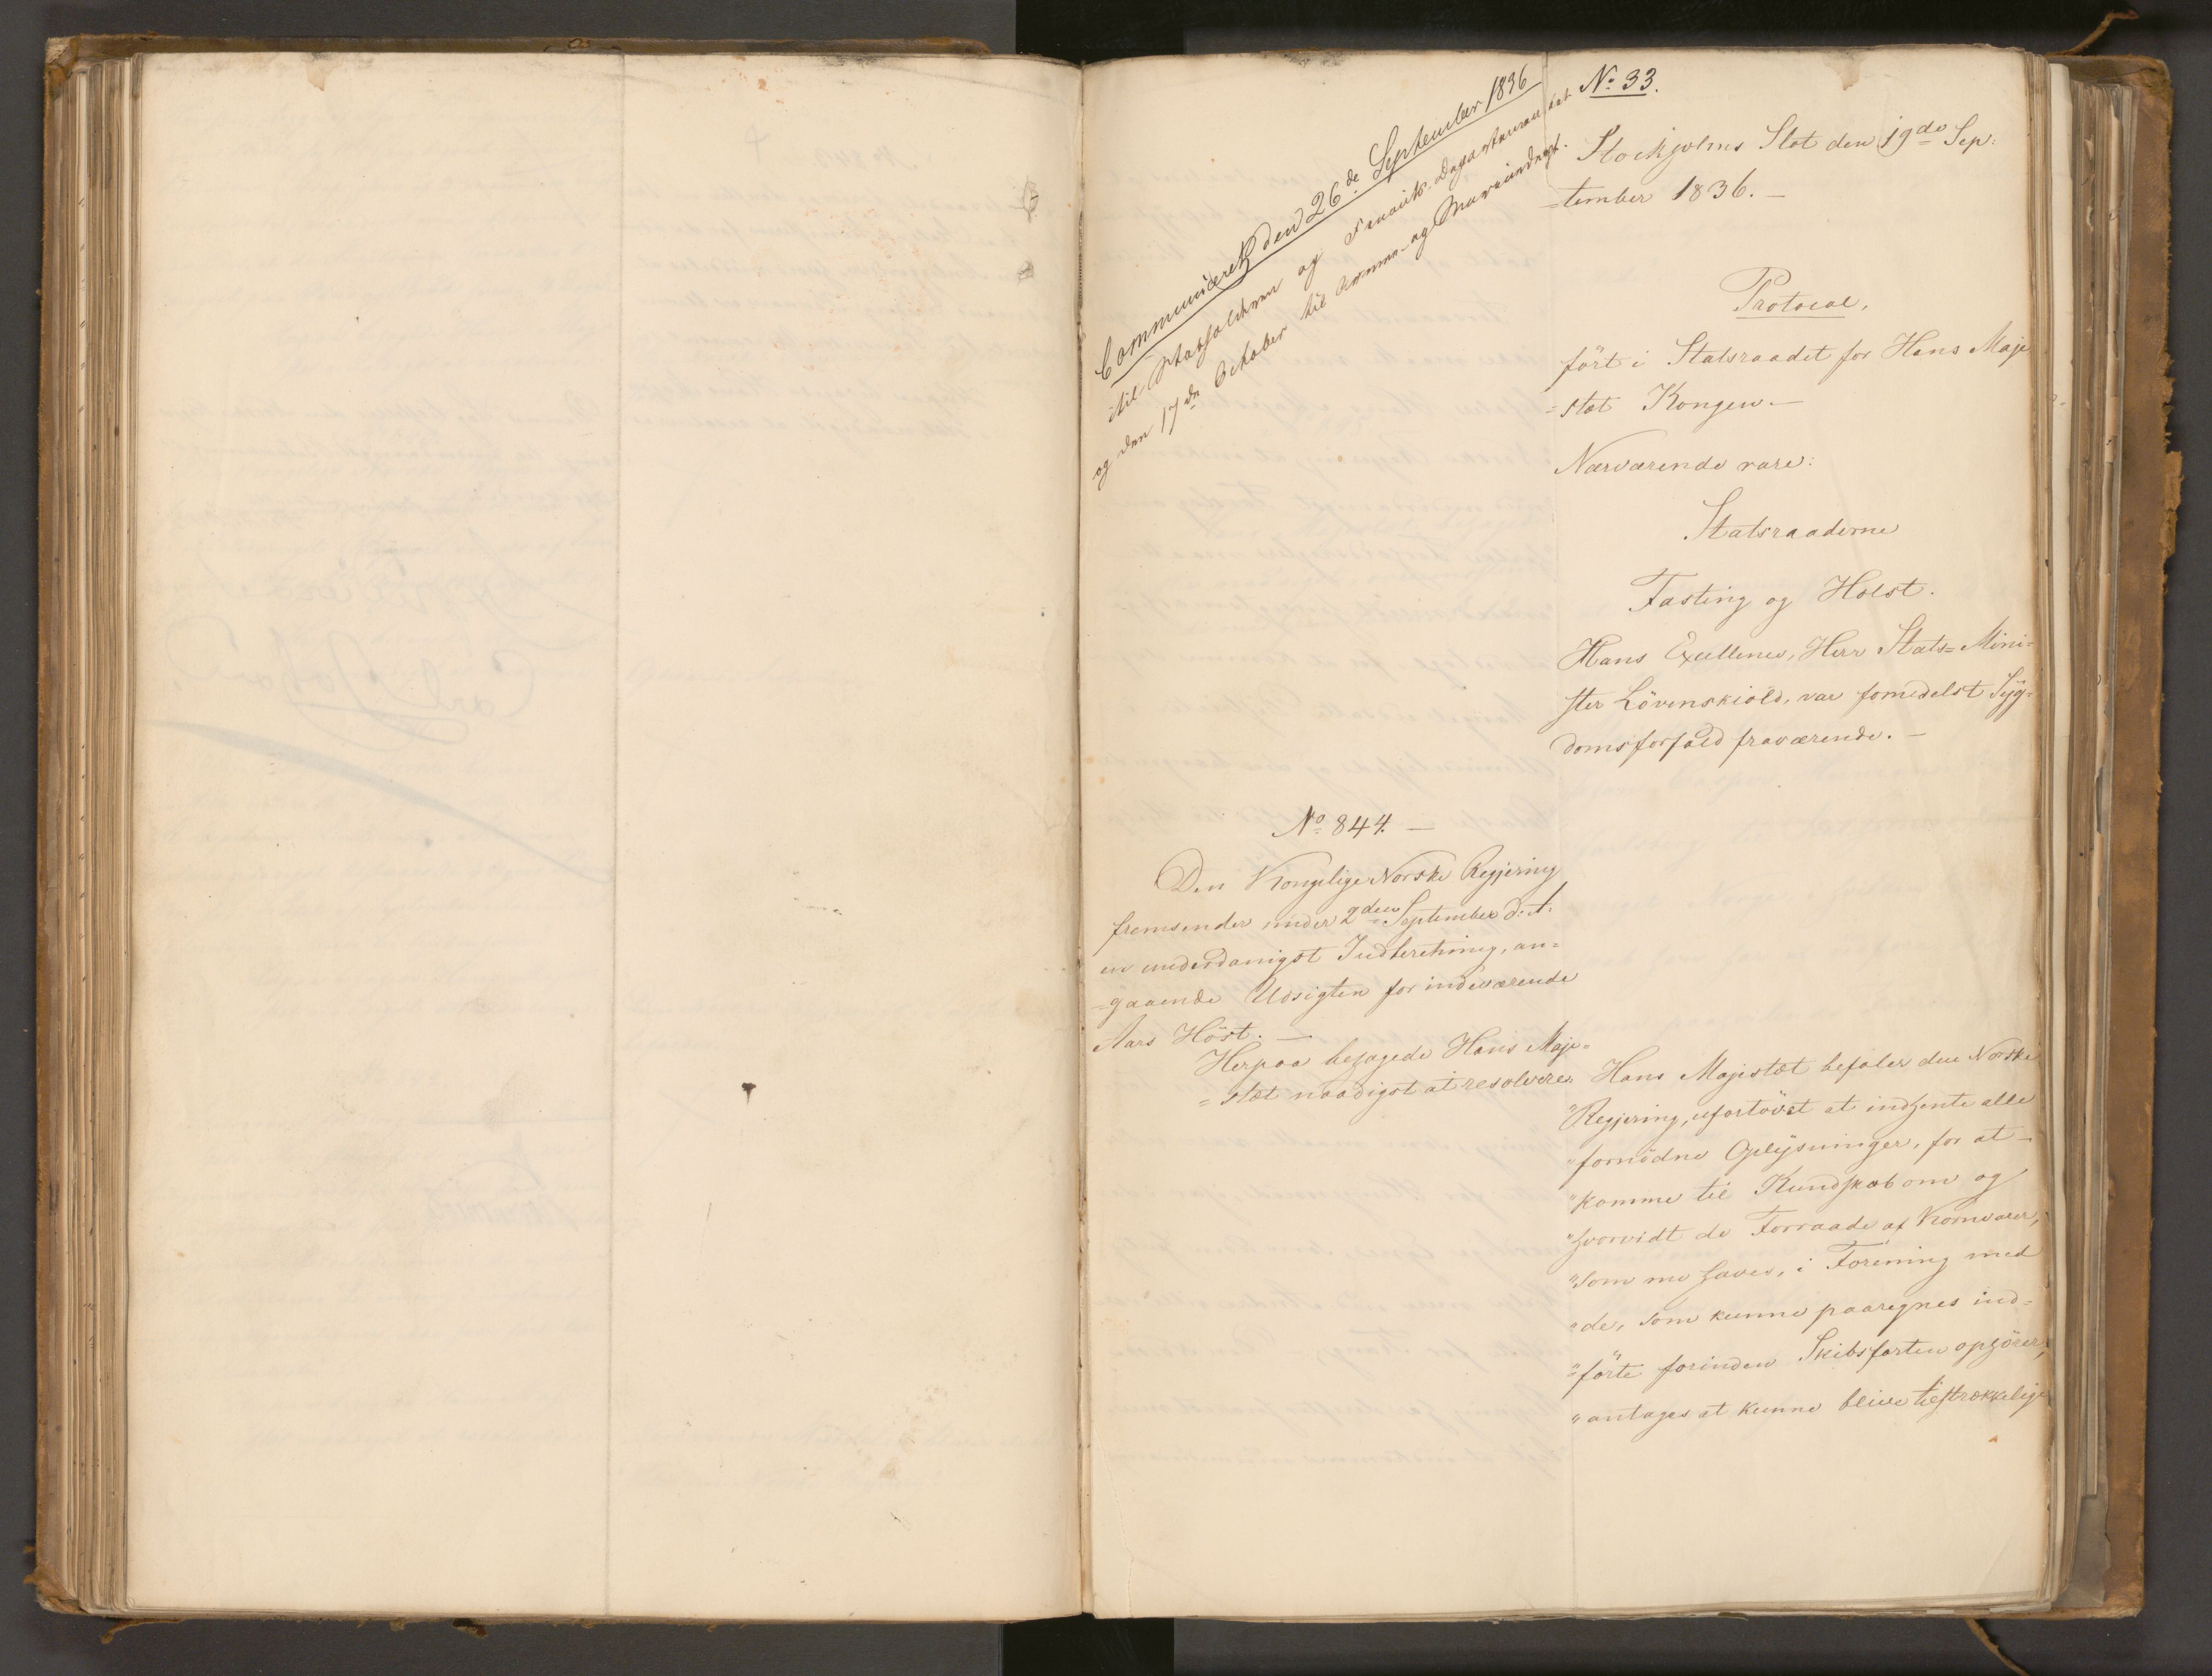 Communiceret den 26de September 1836
til Statholderen og Finants-Departementet
og den 17de October til Armee- og Marineindragt.
No 33.
Stockholms Slot den 19de Sep:
=tember 1836. —
Protocol,
ført i Statsraadet for Hans Maje
=stæt Kongen. —
Nærværende vare:
Statsraaderne
Fasting og Holst.
Hans Excellence, Herr Stats=Mini=
ster Løvenskiold, var formedelst Syg=
domsforfald fraværende. —
No 844. —
Den Kongelige Norske Regjering
fremsender under 2den September d: A:
en underdanigst Indberetning, an=
=gaaende Udsigten for indeværende
Aars Høst. —
Herpaa behagede Hans Maje=
=stæt naadigst at resolvere:
Hans Majestæt befaler den Norske
"Regjering, ufortøvet at indhente alle
"fornødne Oplysninger, for at —
"komme til Kundskab om og
"hvorvidt de Forraade af Kornvarer,
"som nu haves, i Forening med
"de, som kunne paaregnes ind=
"=førte forinden Skibsfarten ophører,
"antages at kunne blive tilstrækkelige